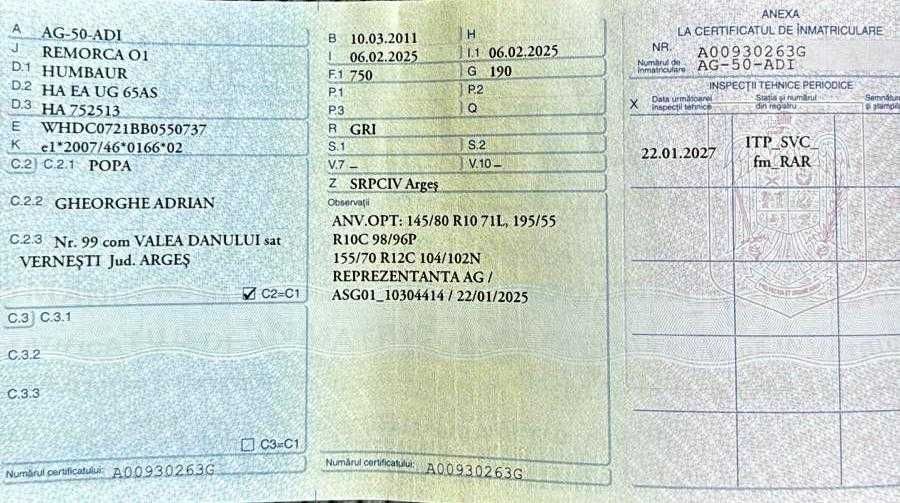 A AG-50-ADI
J REMORCA O1
D.1 HUMBAUR
D.2 HA EA UG 65AS
D.3 HA 752513
E WHDC0721BB0550737
K e1*2007/46*0166*02
C.2 C.2.1 POPA
C.2.2 GHEORGHE ADRIAN
C.2.3 Nr. 99 com VALEA DANULUI sat
VERNEȘTI Jud. ARGEȘ
C2=C1
C.3 C.3.1
C.3.2
C.3.3
C3=C1
Numărul certificatului: A00930263G
B 10.03.2011 H
I 06.02.2025 I.1 06.02.2025
F.1 750 G 190
P.1 P.2
P.3 Q
R GRI
S.1 S.2
V.7 – V.10 –
Z SRPCIV Argeș
Observații
ANV.OPT: 145/80 R10 71L, 195/55
R10C 98/96P
155/70 R12C 104/102N
REPREZENTANTA AG /
ASG01_10304414 / 22/01/2025
Numărul certificatului: A00930263G
ANEXA
LA CERTIFICATUL DE ÎNMATRICULARE
NR. A00930263G
Numărul de
înmatriculare AG-50-ADI
INSPECȚII TEHNICE PERIODICE
X Data următoarei
inspecții tehnice
Stația și numărul
din registru
Semnătur
și ștampila
22.01.2027
ITP_SVC_
fm_RAR